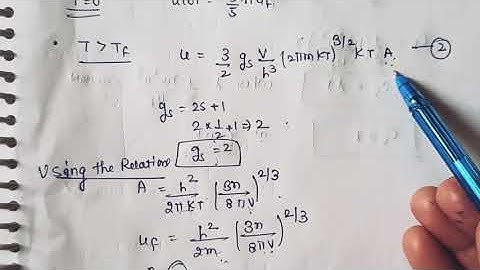 T=0 u(0) = 3/5 n u_f
• T > T_f u = 3/2 g_s V/h³ (2πmKT)^{3/2} KT A —②
g_s = 2s + 1
2 × 1/2 + 1 ⇒ 2
Using the Relation g_s = 2
A = h²/2πKT (3n/8πV)^{2/3}
u_f = h²/2m (3n/8πV)^{2/3}